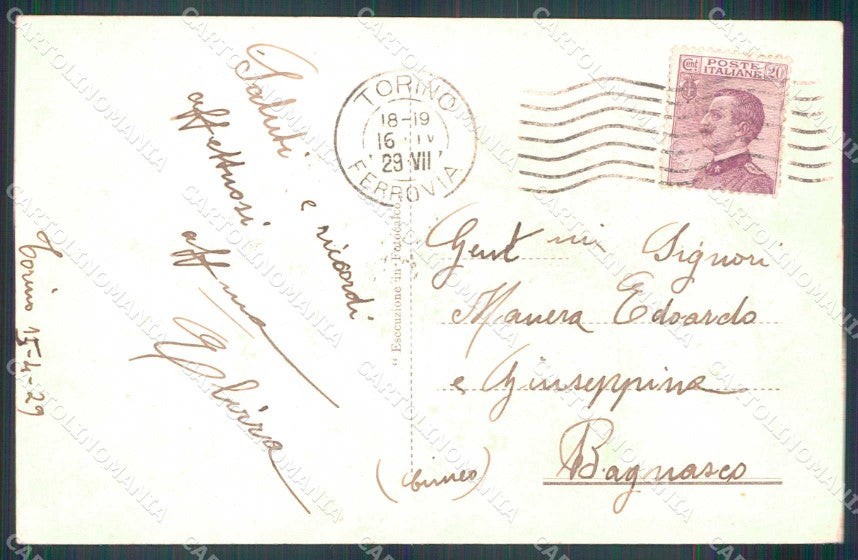 Saluti e ricordi
affettuosi
aff/ma
Torino 15-4-29
TORINO
18-19
16 · IV
29 · VII
FERROVIA
Cent POSTE 20
ITALIANE
" Esecuzione in Fotocalco
Gent mi Signori
Manera Edoardo
e Giuseppina
Bagnasco
(Cuneo)
CARTOLINOMANIA